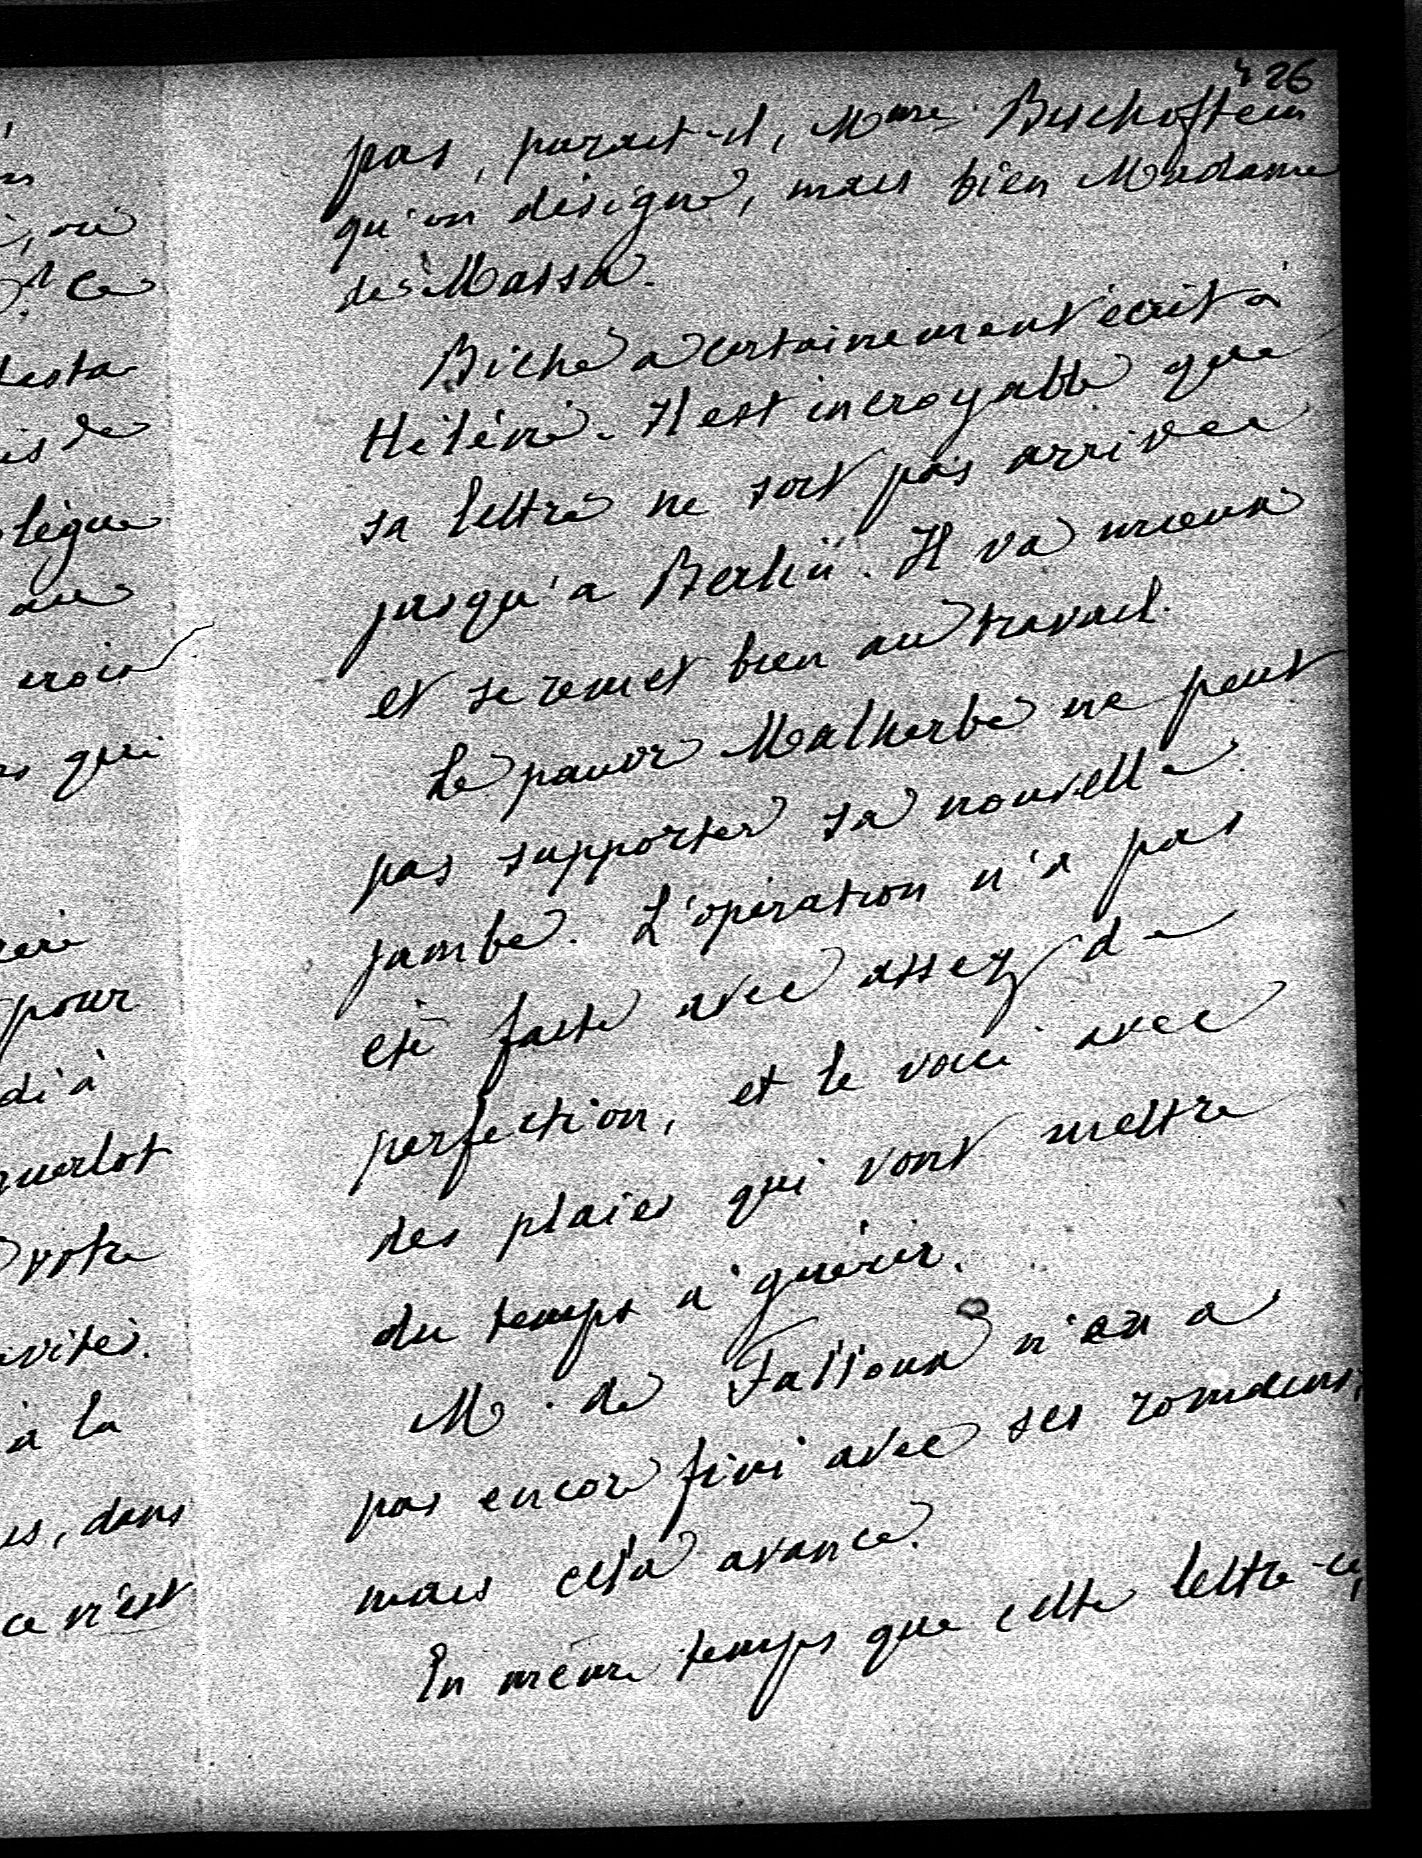 426
pas, parait-il, Mme Bischoffsein
qu'on désigne, mais bien Madame
de Massa.
Biche a certainement écrit à
Hélène. Il est incroyable que
sa lettre ne soit pas arrivée
jusqu'à Berlin. Il va mieux
et se remet bien au travail.
Le pauvre Malherbe ne peut
pas supporter sa nouvelle
jambe. L'opération n'a pas
été faite avec assez de
perfection, et le voici avec
des plaies qui vont mettre
du temps à guérir.
M. de Falloux n'en a
pas encore fini avec ses romains,
mais cela avance.
En même temps que cette lettre-ci,
ce
de
lègue
au
qui
pour
di à
votre
à la
, dans
ce n'est